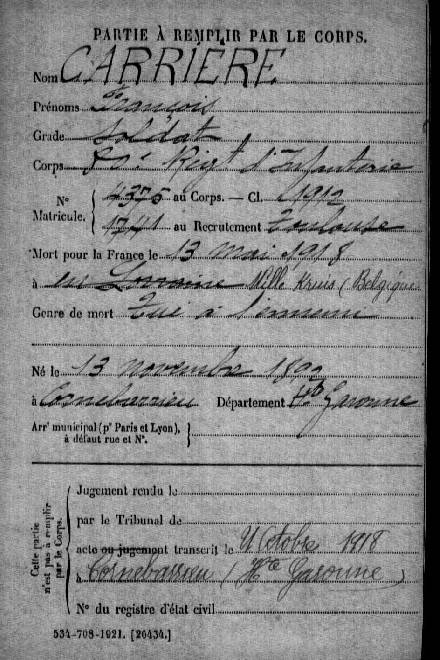 PARTIE À REMPLIR PAR LE CORPS.
Nom CARRIÈRE
Prénoms François
Grade Soldat
Corps 80e Régt d'Infanterie
N° Matricule. 4375 au Corps. — Cl. 1912
1741 au Recrutement Toulouse
Mort pour la France le 13 mai 1918
à en Lorraine Mille Kreus (Belgique
Genre de mort Tué à l'ennemi
Né le 13 novembre 1892
à Cornebarrieu Département Hte Garonne
Arrt municipal (pr Paris et Lyon),
à défaut rue et N°.
Cette partie n'est pas à remplir par le Corps.
Jugement rendu le
par le Tribunal de
acte ou jugement transcrit le Octobre 1918
à Cornebarrieu (Hte Garonne)
N° du registre d'état civil
534-708-1921. [26434.]